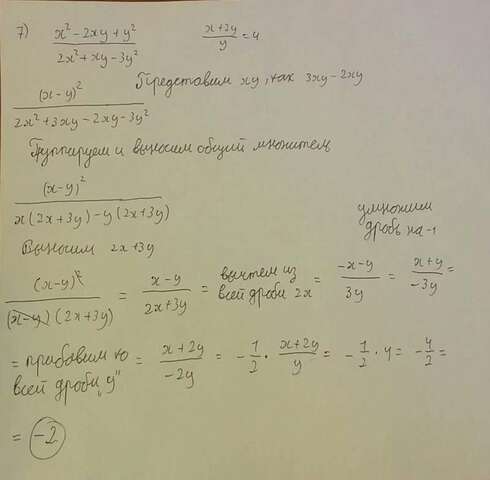 7) (x² - 2xy + y²)/(2x² + xy - 3y²) (x+2y)/y = 4
(x-y)²/(2x² + 3xy - 2xy - 3y²) Представим xy, как 3xy - 2xy
Группируем и выносим общий множитель
(x-y)²/(x(2x+3y) - y(2x+3y))
умножим дробь на -1
Выносим 2x+3y
(x-y)²/((x-y)(2x+3y)) = (x-y)/(2x+3y) = вычтем из всей дроби 2x = (-x-y)/(3y) = (x+y)/(-3y) =
= прибавим ко всей дроби "y" = (x+2y)/(-2y) = -1/2 · (x+2y)/y = -1/2 · 4 = -4/2 =
= -2